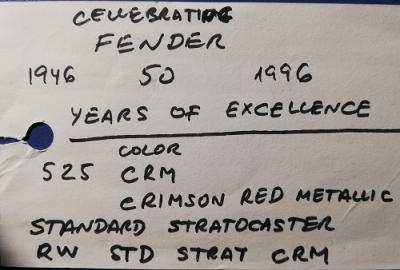 CELLEBRATING
FENDER
1946 50 1996
YEARS OF EXCELLENCE
COLOR
525 CRM
CRIMSON RED METALLIC
STANDARD STRATOCASTER
RW STD STRAT CRM